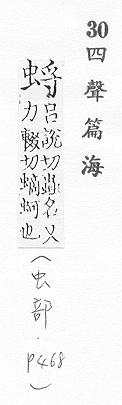 30四聲篇海
蛶 呂說切虫名又
力輟切螪蚵也
(虫部.p468)